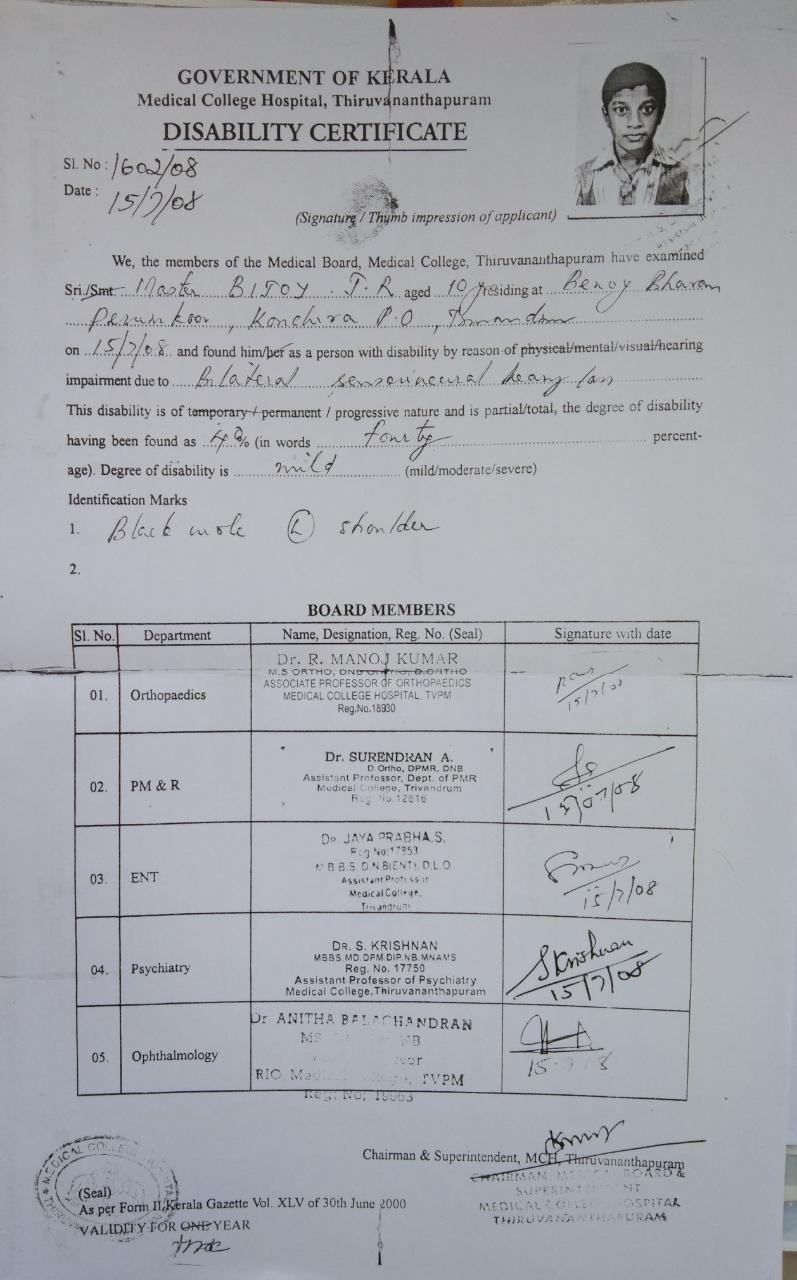 GOVERNMENT OF KERALA
Medical College Hospital, Thiruvananthapuram
DISABILITY CERTIFICATE
Sl. No : 1602/08
Date : 15/7/08
(Signature / Thumb impression of applicant)
We, the members of the Medical Board, Medical College, Thiruvananthapuram have examined
Sri./Smt. Master BIJOY . J. R aged 10 residing at Benoy Bhavan
Perumkoor, Konchira P.O, Trivandrum
on 15/7/08 and found him/her as a person with disability by reason of physical/mental/visual/hearing
impairment due to Bilateral sensorineural hearing loss
This disability is of temporary / permanent / progressive nature and is partial/total, the degree of disability
having been found as 40% (in words fourty percent-
age). Degree of disability is mild (mild/moderate/severe)
Identification Marks
1. Black mole (L) shoulder
2.
BOARD MEMBERS
Sl. No. Department Name, Designation, Reg. No. (Seal) Signature with date
Dr. R. MANOJ KUMAR
M.S ORTHO, DNB ORTHO, D.ORTHO
01. Orthopaedics ASSOCIATE PROFESSOR OF ORTHOPAEDICS
MEDICAL COLLEGE HOSPITAL, TVPM
Reg.No.18930
15/7/08
Dr. SURENDRAN A.
D.Ortho, DPMR, DNB
02. PM & R Assistant Professor, Dept. of PMR
Medical College, Trivandrum
Reg. No.12816
15/07/08
Dr JAYA PRABHA.S.
Reg No:17853
M.B.B.S. D.N.B(ENT), D.L.O
03. ENT Assistant Professor
Medical College,
Trivandrum
15/7/08
DR. S. KRISHNAN
MBBS.MD.DPM.DIP.NB.MNAMS
04. Psychiatry Reg. No. 17750
Assistant Professor of Psychiatry
Medical College,Thiruvananthapuram
SKrishnan
15/7/08
Dr ANITHA BALACHANDRAN
05. Ophthalmology
RIO, TVPM
Reg. No;
Chairman & Superintendent, MCH, Thiruvananthapuram
CHAIRMAN, MEDICAL BOARD &
SUPERINTENDENT
MEDICAL COLLEGE HOSPITAL
THIRUVANANTHAPURAM
MEDICAL COLLEGE
(Seal)
As per Form II,Kerala Gazette Vol. XLV of 30th June 2000
VALIDITY FOR ONE YEAR